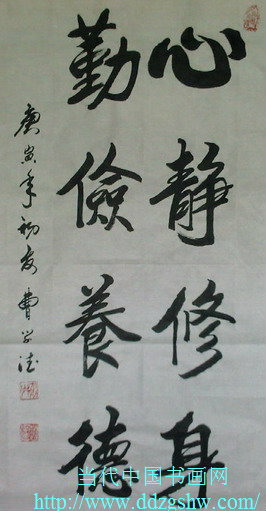 心靜修身
勤儉養德
庚寅年初夏
当代中国书画网
http://www.ddzgshw.com/